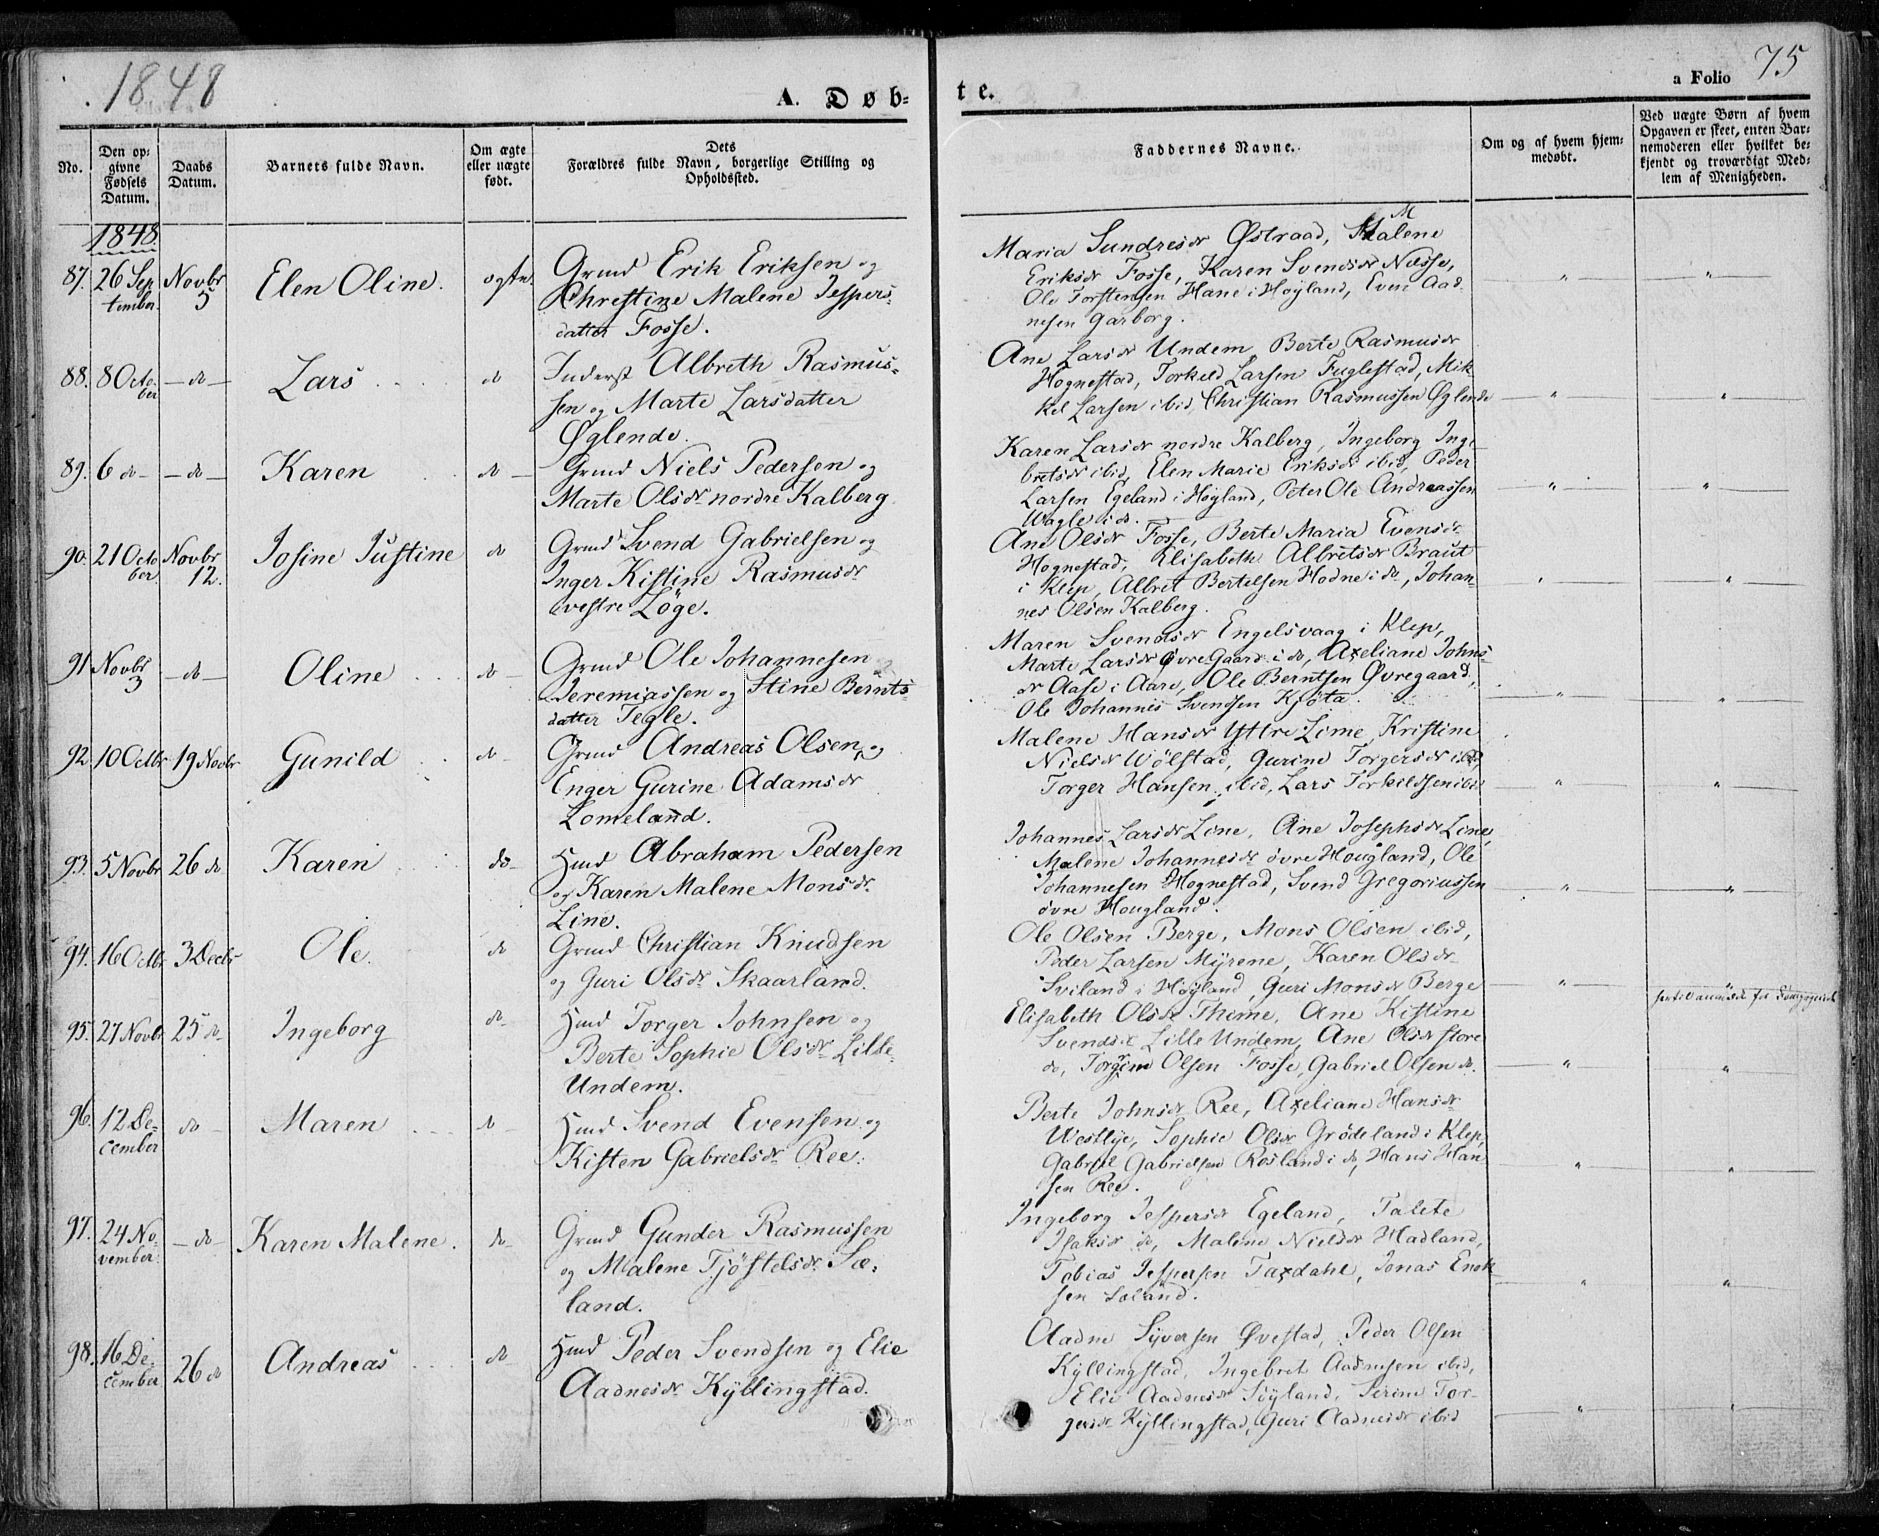 1848
A. Døb-
te.
a Folio 75
No.
Den op-
givne
Fødsels
Datum.
Daabs
Datum.
Barnets fulde Navn.
Om ægte
eller uægte
født.
Dets
Forældres fulde Navn, borgerlige Stilling og
Opholdssted.
Faddernes Navne.
Om og af hvem hjem-
medøbt.
Ved uægte Børn af hvem
Opgaven er skeet, enten Bar-
nemoderen eller hvilket be-
kjendt og troværdigt Med-
lem af Menigheden.
1848.
87. 26 Sep
tember. Novbr
5 Elen Oline. ægte.
Grmd Erik Eriksen og
Chrestine Malene Jespers-
datter Fosse.
Maria Sundresdr Østraad, Malene
Eriksdr Fosse, Karen Svendsdr Næsse,
Ole Torstensen Hane i Høyland, Even Aad
nesen Garborg.
88. 8 Octo
ber — do — Lars do
Inderst Albreth Rasmus-
sen og Marte Larsdatter
Øglende.
Ane Larsdr Undem, Berte Rasmusdr
Hognestad, Torkild Larsen Fuglestad, Mik
kel Larsen ibid, Christian Rasmussen Øglende
89. 6 do — do — Karen do
Grmd Niels Pedersen og
Marte Olsdr nordre Kalberg
Karen Larsdr nordre Kalberg, Ingeborg Inge
bretsdr ibid, Elen Marie Eriksdr ibid, Peder
Larsen Egeland i Høyland, Peter Ole Andreassen
Wagle i do.
90. 21 Octo
ber Novbr
12. Josine Justine do
Grmd Svend Gabrielsen og
Inger Kistine Rasmusdr
vestre Løge.
Ane Olsdr Fosse, Berte Maria Evensdr
Hognestad, Elisabeth Albretsdr Braut
i Klep, Albret Bertelsen Hodne i do, Johan-
nes Olsen Kalberg.
91 Novbr
3 — do — Oline do
Grmd Ole Johannesen
Jeremiassen og Stine Bernts-
datter Tegle.
Maren Svendsdr Engelsvaag i Klep,
Marte Larsdr Øvre Gaard i do, Axeliane Johns-
dr Aase i Aare, Ole Berntsen Øvregaard,
Ole Johannes Svendsen Kjøta.
92. 10 Octbr 19 Novbr Gunild do
Grmd Andreas Olsen og
Enger Gurine Adamsdr
Lomeland.
Malene Hansdr Yttre Lime, Kristine
Nielsdr Wølstad, Gurine Torgersdr ibid
Torger Hansen ibid, Lars Torkildsen ibid
93. 5 Novbr 26 do Karen do
Hmd Abraham Pedersen
og Karen Malene Monsdr
Line.
Johannes Larsdr Line, Ane Josephsdr Line,
Malene Johannesdr øvre Hougland, Ole
Johannesen Hognestad, Svend Gregoriussen
øvre Hougland.
94. 16 Octbr 3 Decbr Ole. do
Grmd Christian Knudsen
og Guri Olsdr Skaarland.
Ole Olsen Berge, Mons Olsen ibid,
Peder Larsen Myrene, Karen Olsdr
Sviland i Høyland, Guri Monsdr Berge
95. 27 Novbr 25 do Ingeborg do
Hmd Torger Johnsen og
Berte Sophie Olsdr Lille-
Undem.
Elisabeth Olsdr Thime, Ane Kistine
Svendsdr Lille Undem, Ane Olsdr store
do, Torgrim Olsen Fosse, Gabriel Olsen do.
96. 12 De-
cember do Maren do
Hmd Svend Evensen og
Kisten Gabrielsdr Ree.
Berte Johnsdr Ree, Axeliane Hansdr
Westlye, Sophie Olsdr Grødeland i Klep,
Gabriel Gabrielsen Rosland i do, Hans Han
sen Ree.
97. 24 No-
vember — do — Karen Malene. do
Grmd Gunder Rasmussen
og Malene Tjøstelsdr Sæ-
land.
Ingeborg Jespersdr Egeland, Talete
Isaksdr do, Malene Nielsdr Hadland,
Tobias Jespersen Taxdahl, Jonas Enok-
sen Sæland.
98. 16 De-
cember 26 do Andreas do
Hmd Peder Svendsen og Elie
Aadnesdr Kyllingstad.
Aadne Syversen Øvestad, Peder Olsen
Kyllingstad, Ingebret Aadnesen ibid,
Elie Aadnesdr Søyland, Serine Tor-
gersdr Kyllingstad, Guri Aadnesdr ibid